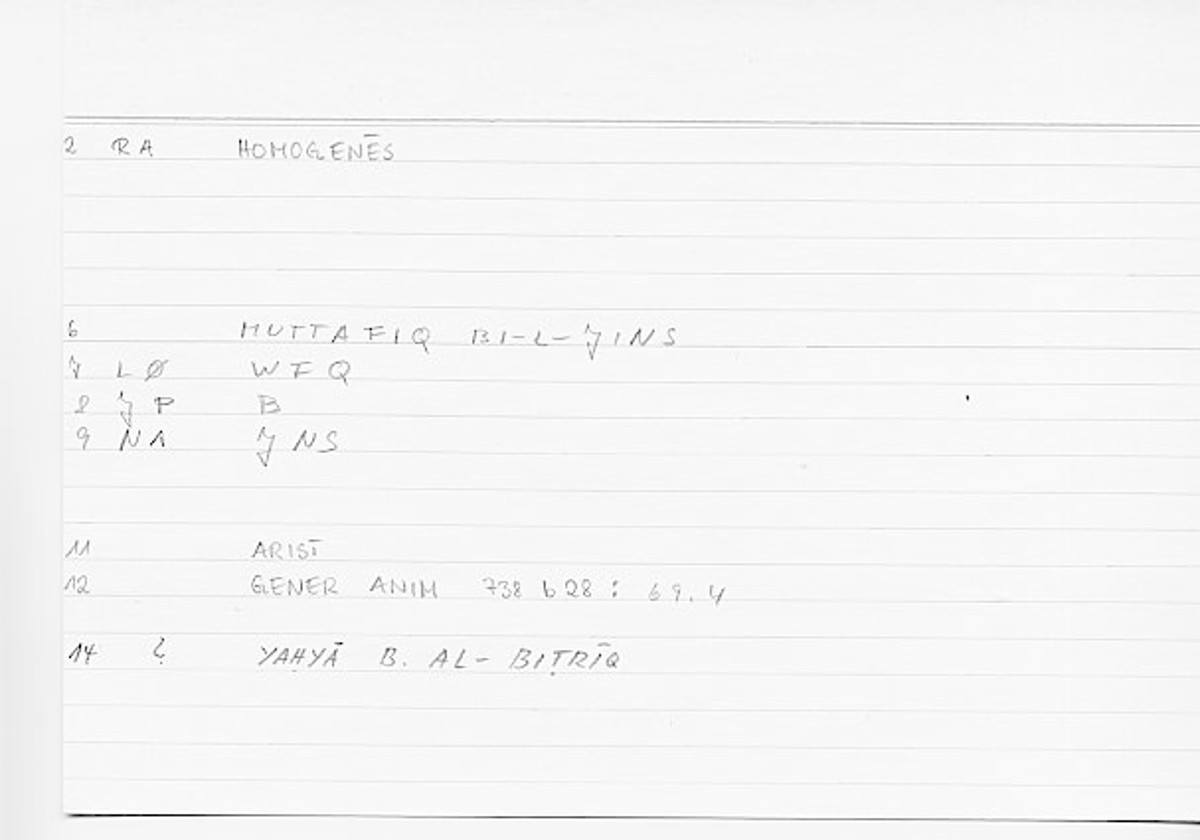 2 RA HOMOGENĒS
6 MUTTAFIQ BI-L-JINS
7 LØ WFQ
8 JP B
9 NA JNS
11 ARIST
12 GENER ANIM 738 b 28 : 69.4
14 ? YAḤYĀ B. AL-BIṬRĪQ